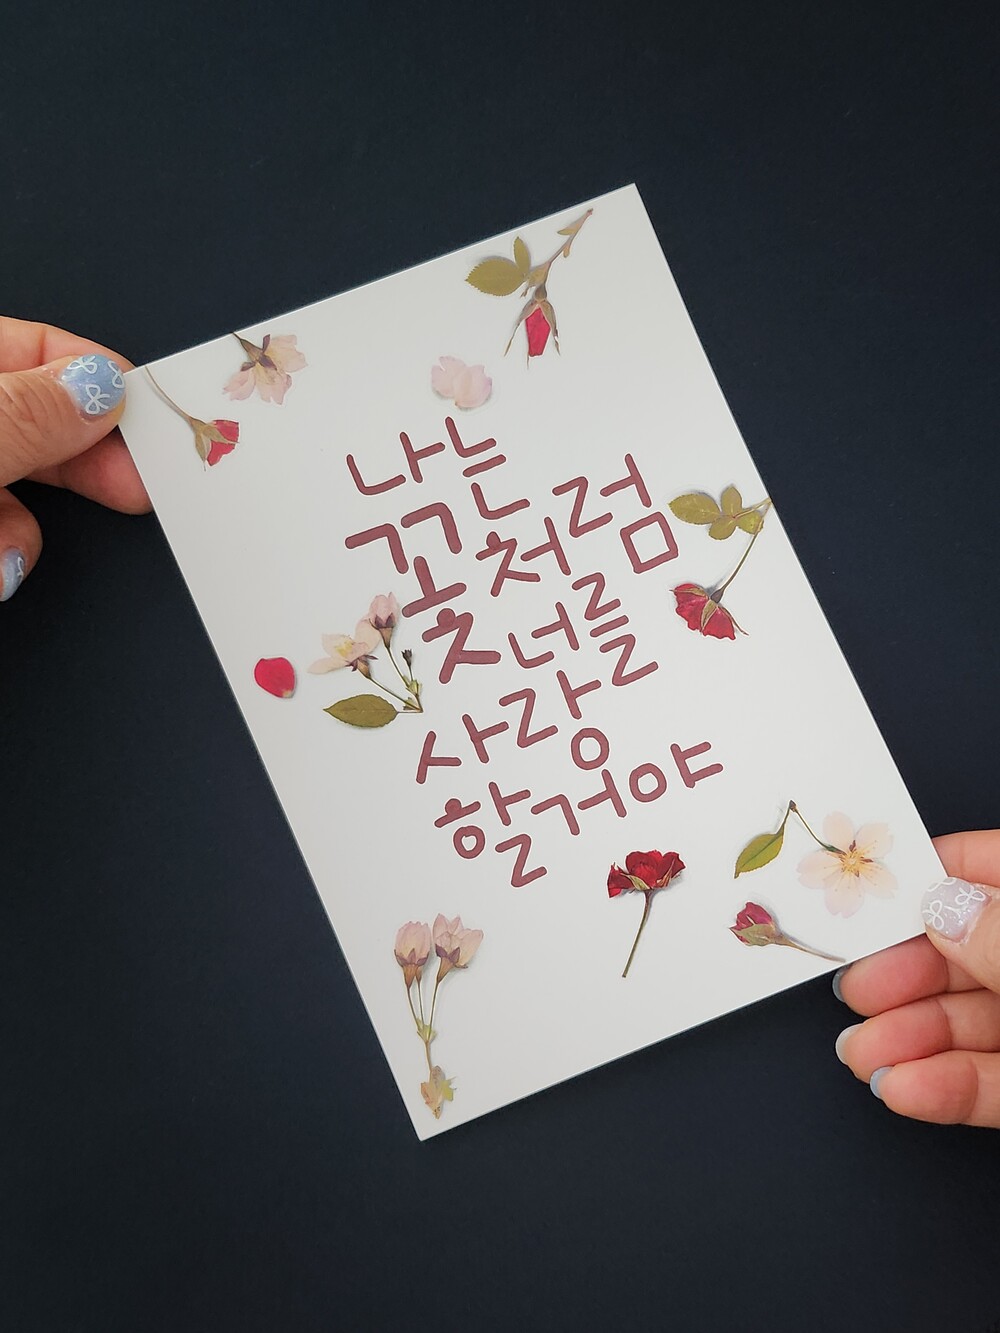 나는
꽃처럼
너를
사랑
할거야